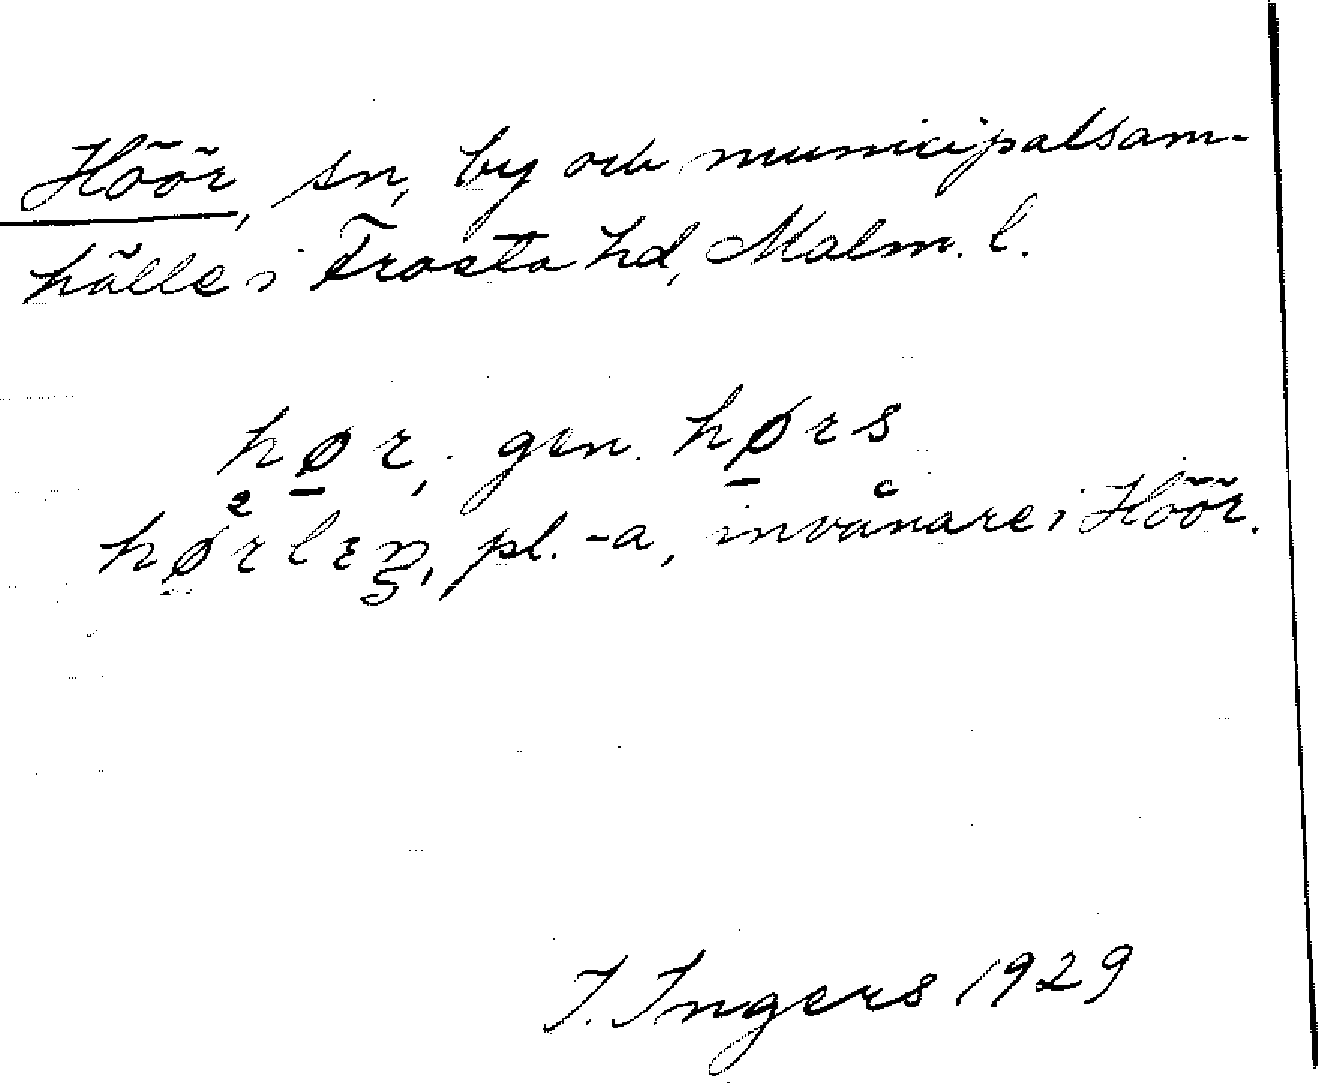 Höör, sn, by och municipalsam-
hälle i Frosta hd, Malm. l.
hør, gen. hørs
hørlɛŋ, pl. -a, invånare i Höör.
I. Ingers 1929